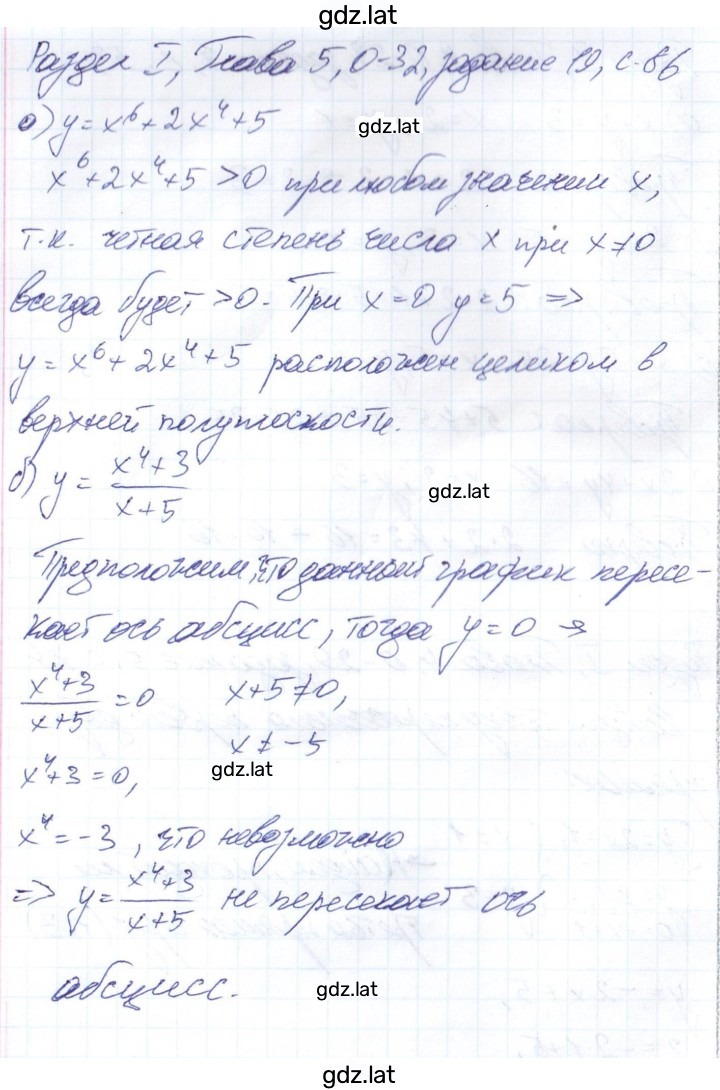 gdz.lat
Раздел I, Глава 5, О-32, задание 19, с-86
а) y = x⁶ + 2x⁴ + 5
gdz.lat
x⁶ + 2x⁴ + 5 > 0 при любом значении x,
т.к. четная степень числа x при x ≠ 0
всегда будет > 0. При x = 0 y = 5 =>
y = x⁶ + 2x⁴ + 5 расположен целиком в
верхней полуплоскости.
б) y = (x⁴+3)/(x+5)
gdz.lat
Предположим, что данный график пересе-
кает ось абсцисс, тогда y = 0 →
(x⁴+3)/(x+5) = 0 x+5 ≠ 0,
x ≠ -5
gdz.lat
x⁴+3 = 0,
x⁴ = -3, что невозможно
=> y = (x⁴+3)/(x+5) не пересекает ось
абсцисс.
gdz.lat
gdz.lat